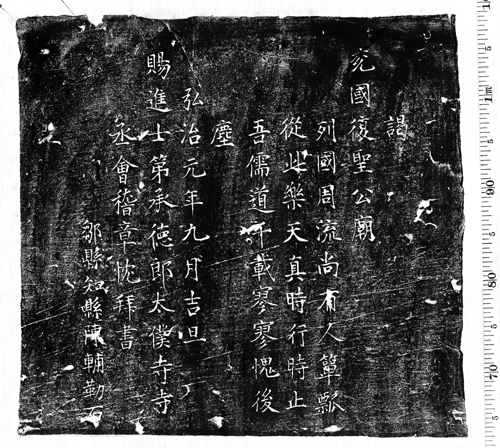 謁
兖國復聖公廟
列國周流尚有人簞瓢
從此樂天真時行時止
吾儒道千載寥寥愧後
塵
弘治元年九月吉旦
賜進士第承德郎太僕寺寺
丞會稽章忱拜書
鄒縣知縣陳輔勒石
5
1m
5
90
5
80
5
70
5